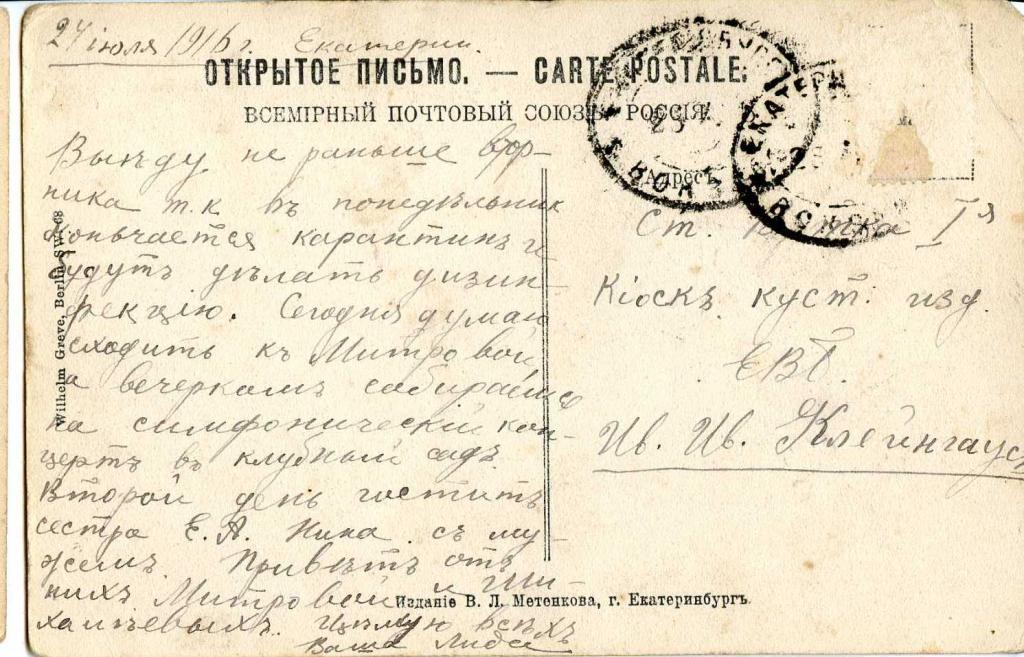 24 іюля 1916 г. Екатерин.
ОТКРЫТОЕ ПИСЬМО. — CARTE POSTALE.
ВСЕМІРНЫЙ ПОЧТОВЫЙ СОЮЗЪ. РОССІЯ.
Выѣду не раньше втор-
ника т.к въ понедѣльник
кончается карантинъ и
будутъ дѣлать дизин-
фекцію. Сегодня думаю
сходить къ Митровой,
а вечеркомъ собираюсь
на симфоническій кон-
цертъ въ клубный садъ.
Второй день гостит
сестра Е. А. Нина съ му-
жемъ. Привѣтъ отъ
нихъ Митровой и
Цѣлую всѣхъ
Ваша Лида
Адресъ
Ст. I я
Кіоскъ куст. изд.
Ив. Ив. Клейнгауз
Wilhelm Greve, Berlin S.W. 68
Изданіе В. Л. Метенкова, г. Екатеринбургъ.